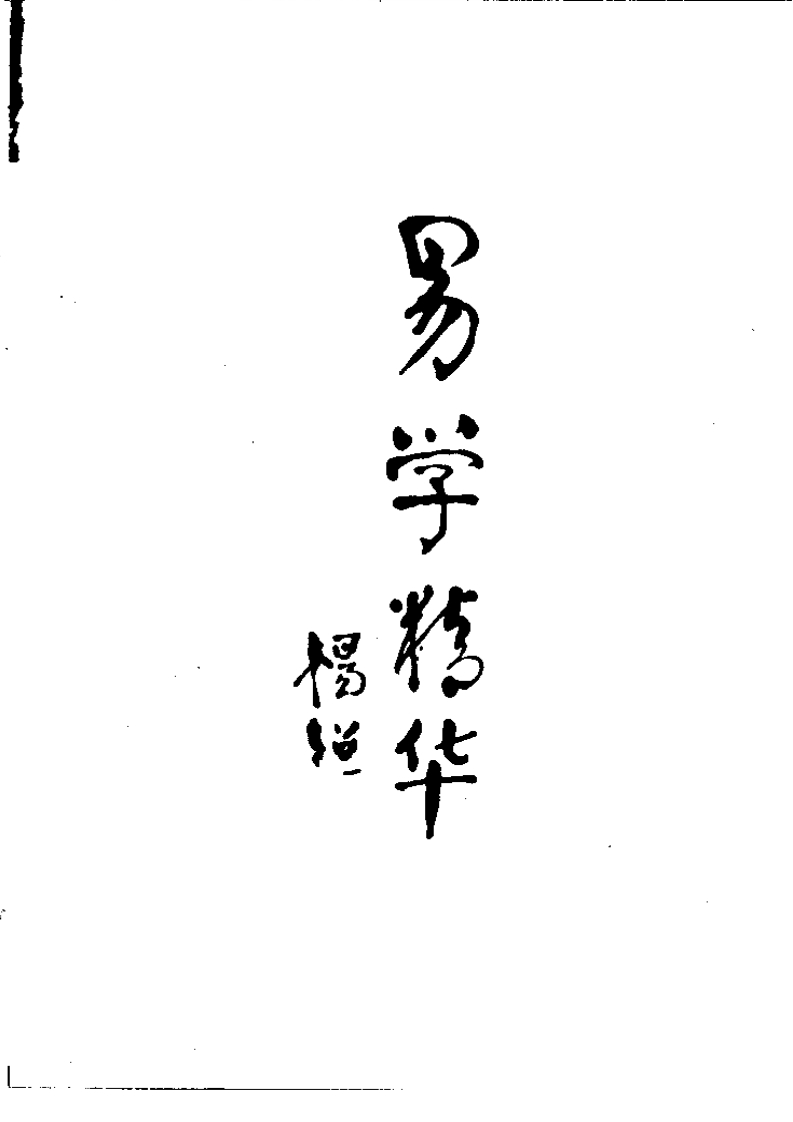 易学精华
楊